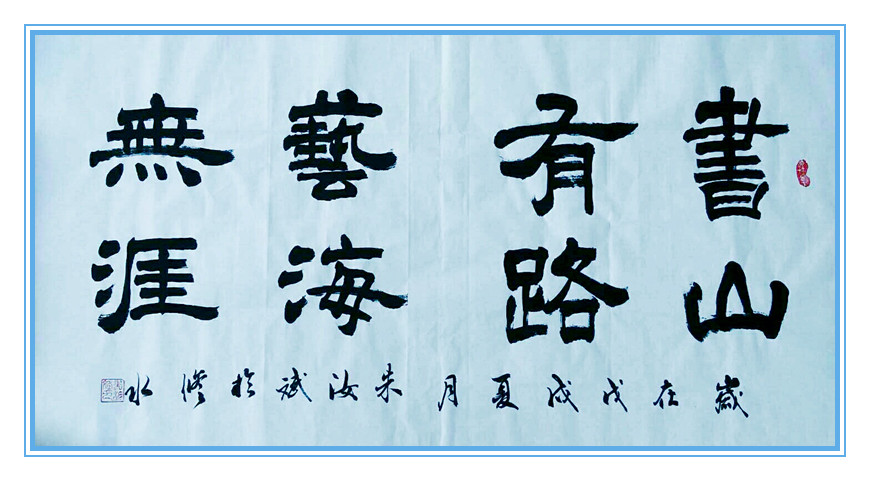 書山
有路
藝海
無涯
歲在戊戌夏月朱汝斌於修水